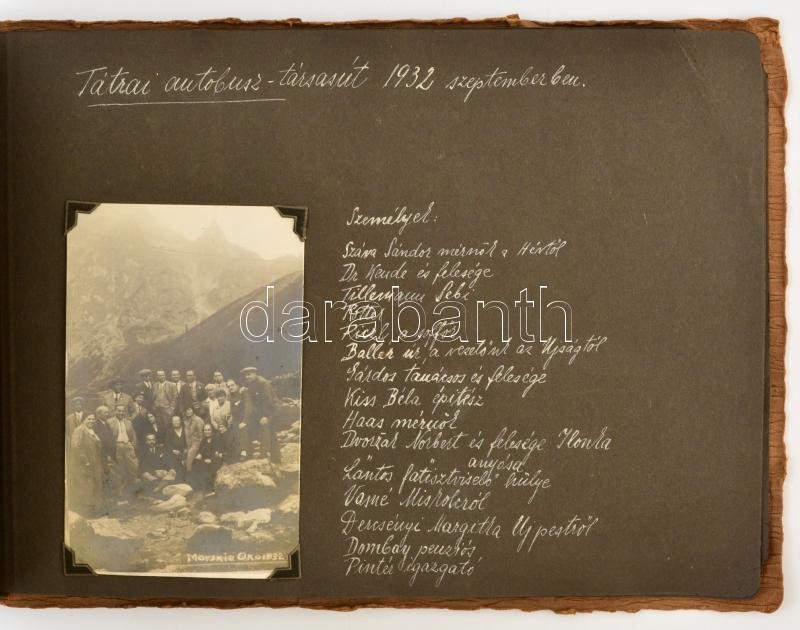 Tátrai autobusz-társasút 1932 szeptemberben.
Személyek:
Száva Sándor mérnök a Hévtől
Dr Kende és felesége
Tillemann Sebi
a soffőr
Baller úr, a vezetőnk az Ujságtól
Gárdos tanácsos és felesége
Kiss Béla építész
Haas mérnök
Dvorzak Norbert és felesége Ilonka
anyósa
Lántos főtisztviselő hülye
Vasné Miskolcról
Dercsényi Margitka Ujpestről
Dombay penzós
Pintér igazgató
Morskie Oko 1932
darabanth